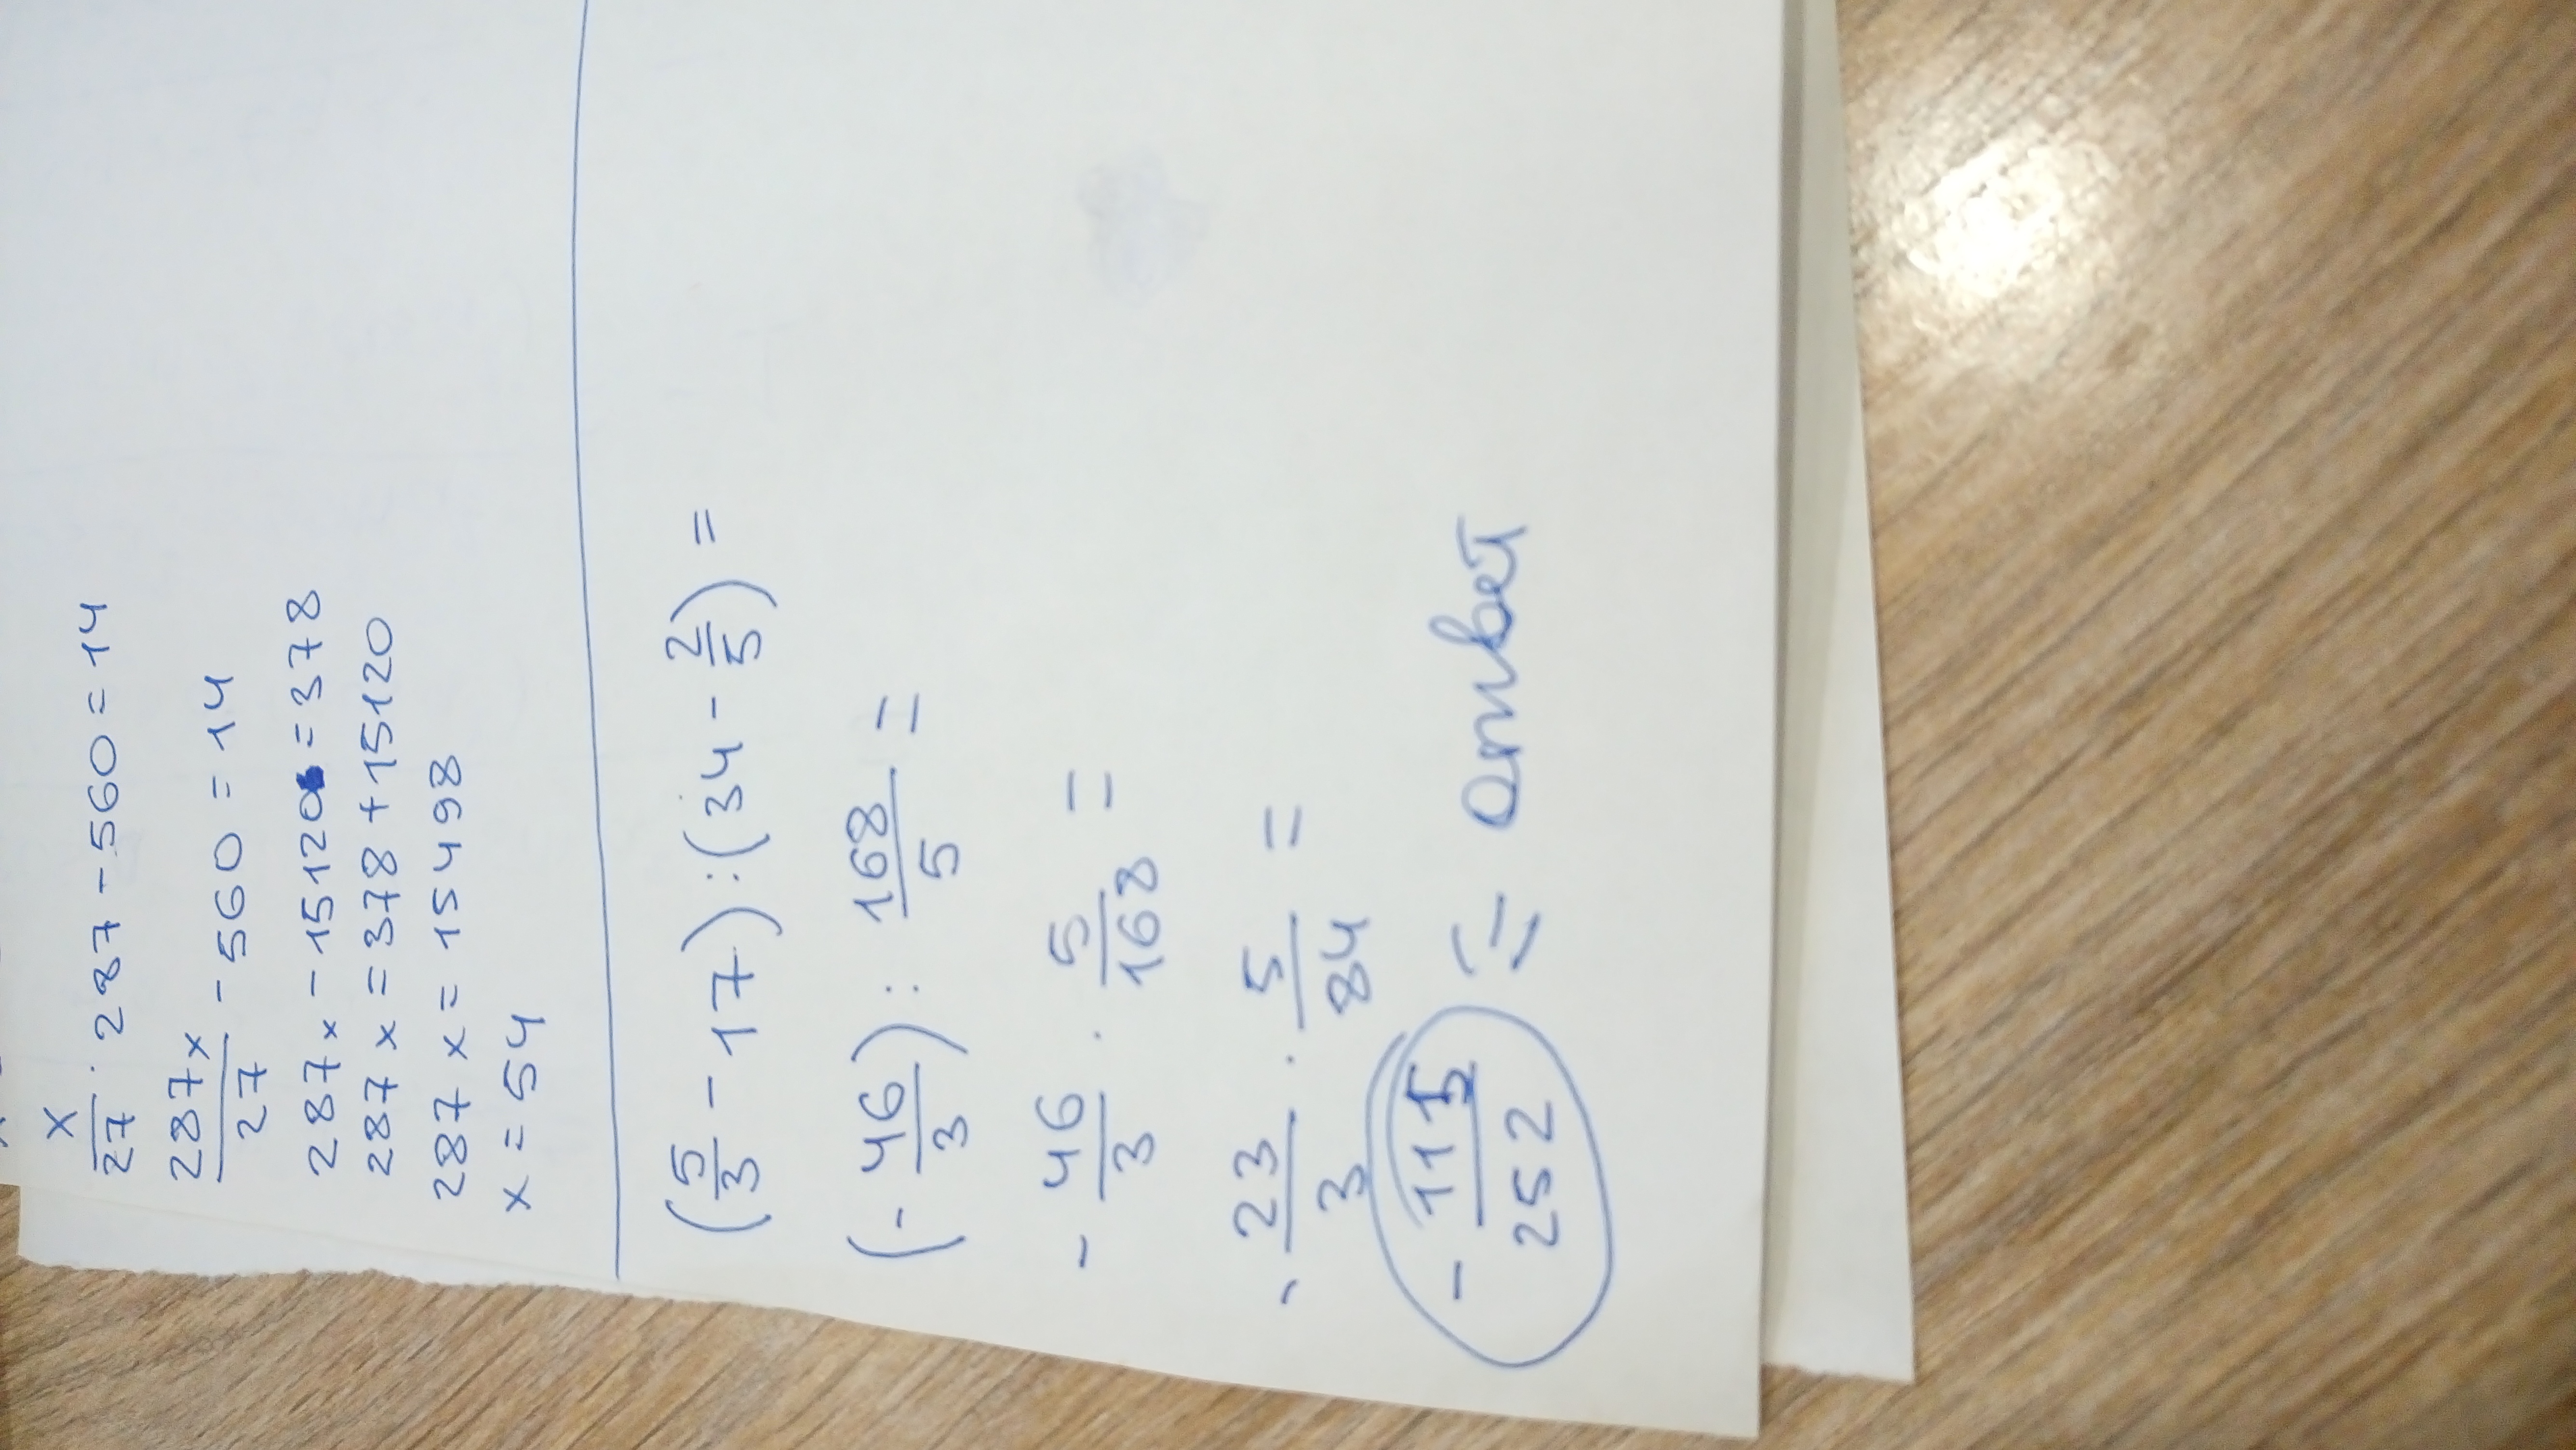 x/27 · 287 - 560 = 14
287x/27 - 560 = 14
287x - 15120 = 378
287x = 378 + 15120
287x = 15498
x = 54
(5/3 - 17) : (34 - 2/5) =
(- 46/3) : 168/5 =
- 46/3 · 5/168 =
- 23/3 · 5/84 =
- 115/252 = ответ